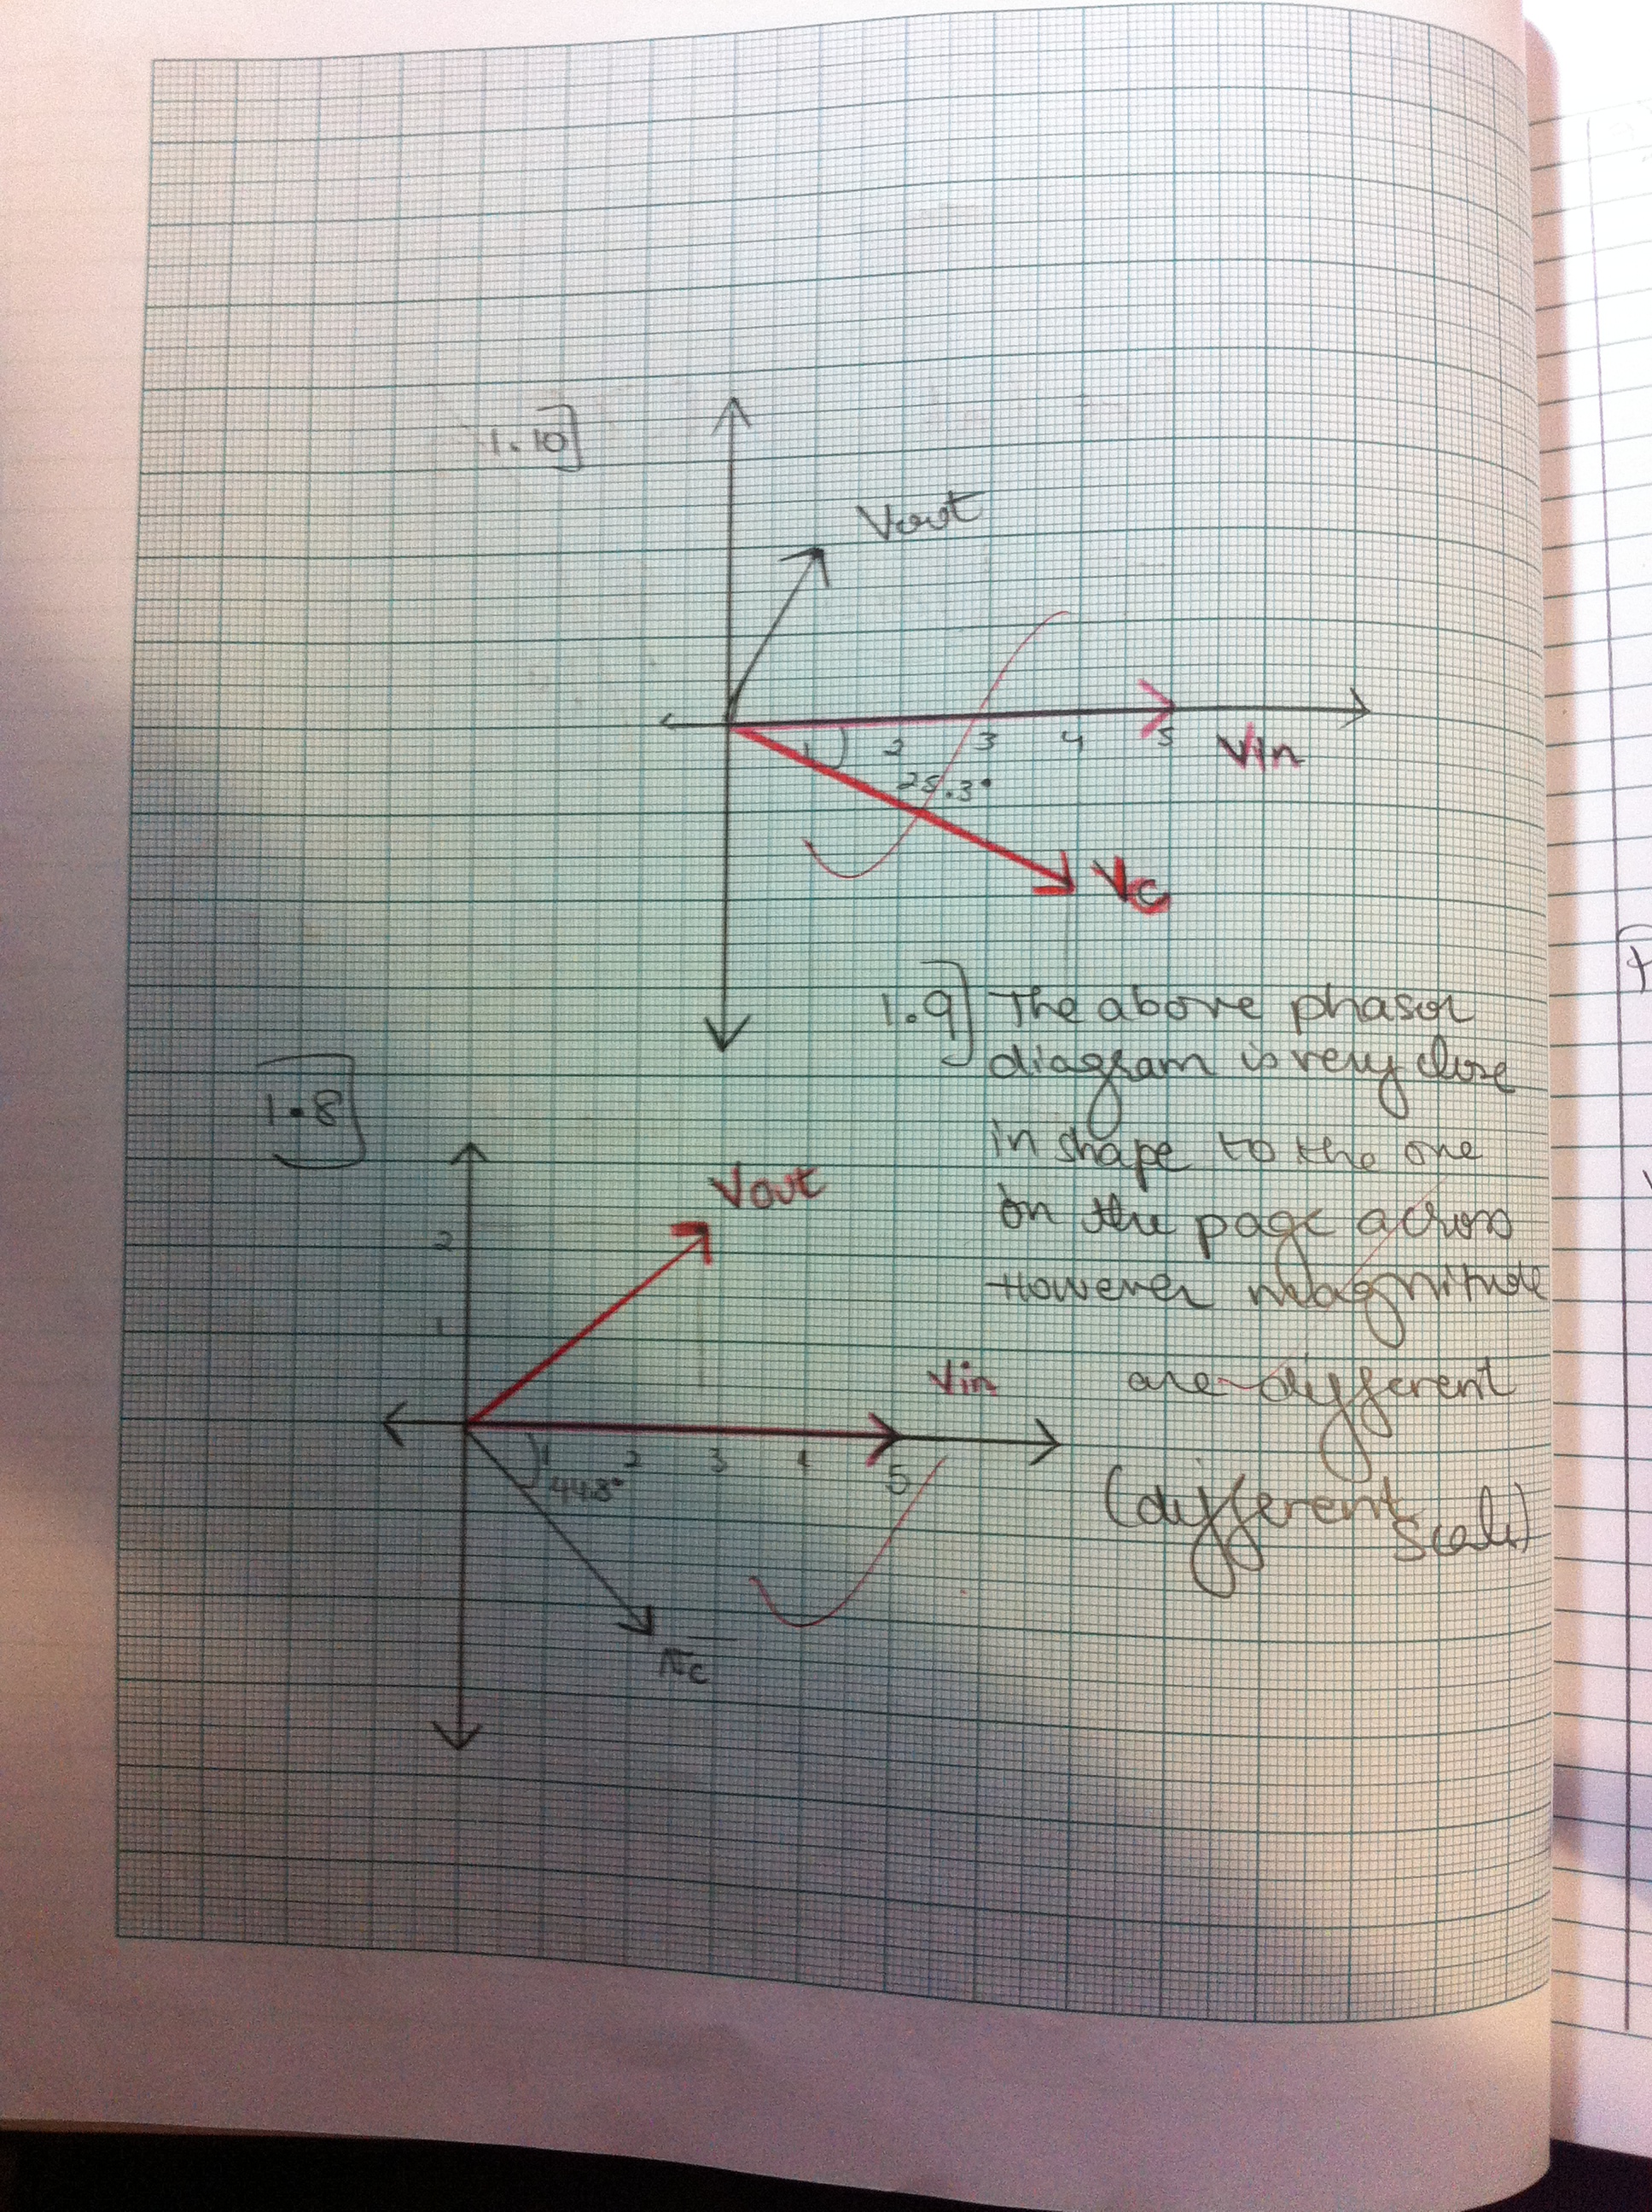 1.10]
Vout
1 2 3 4 5 Vin
25.3°
Vc
1.9] The above phasor
diagram is very close
in shape to the one
on the page across
However magnitude
are different
(different scale)
1.8]
Vout
2
1
Vin
1 2 3 4 5
44.8°
Vc